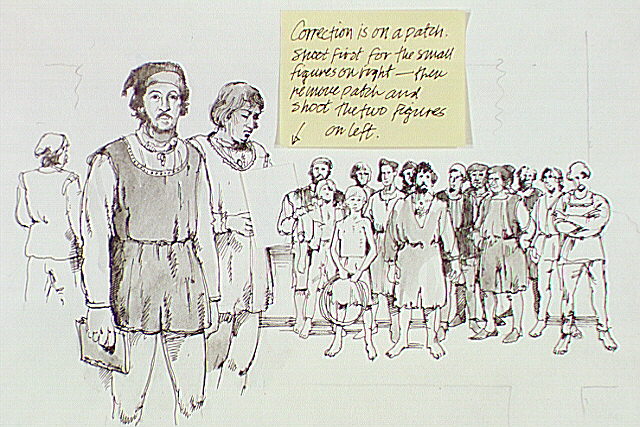 Correction is on a patch.
Shoot first for the small
figures on right — then
remove patch and
shoot the two figures
on left.